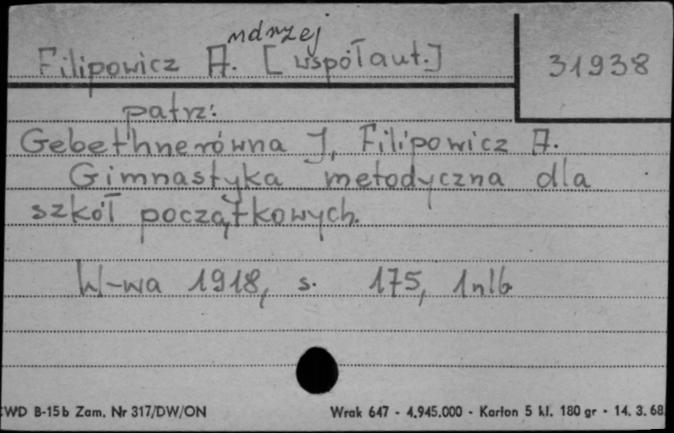 ndrzej
Filipowicz A. [współaut.]
31938
patrz:
Gebethnerówna J, Filipowicz A.
Gimnastyka metodyczna dla
szkół początkowych.
W-wa 1918, s. 175, 1nlb
CWD B-15b Zam. Nr 317/DW/ON Wrak 647 - 4.945.000 - Karton 5 kl. 180 gr - 14. 3. 68